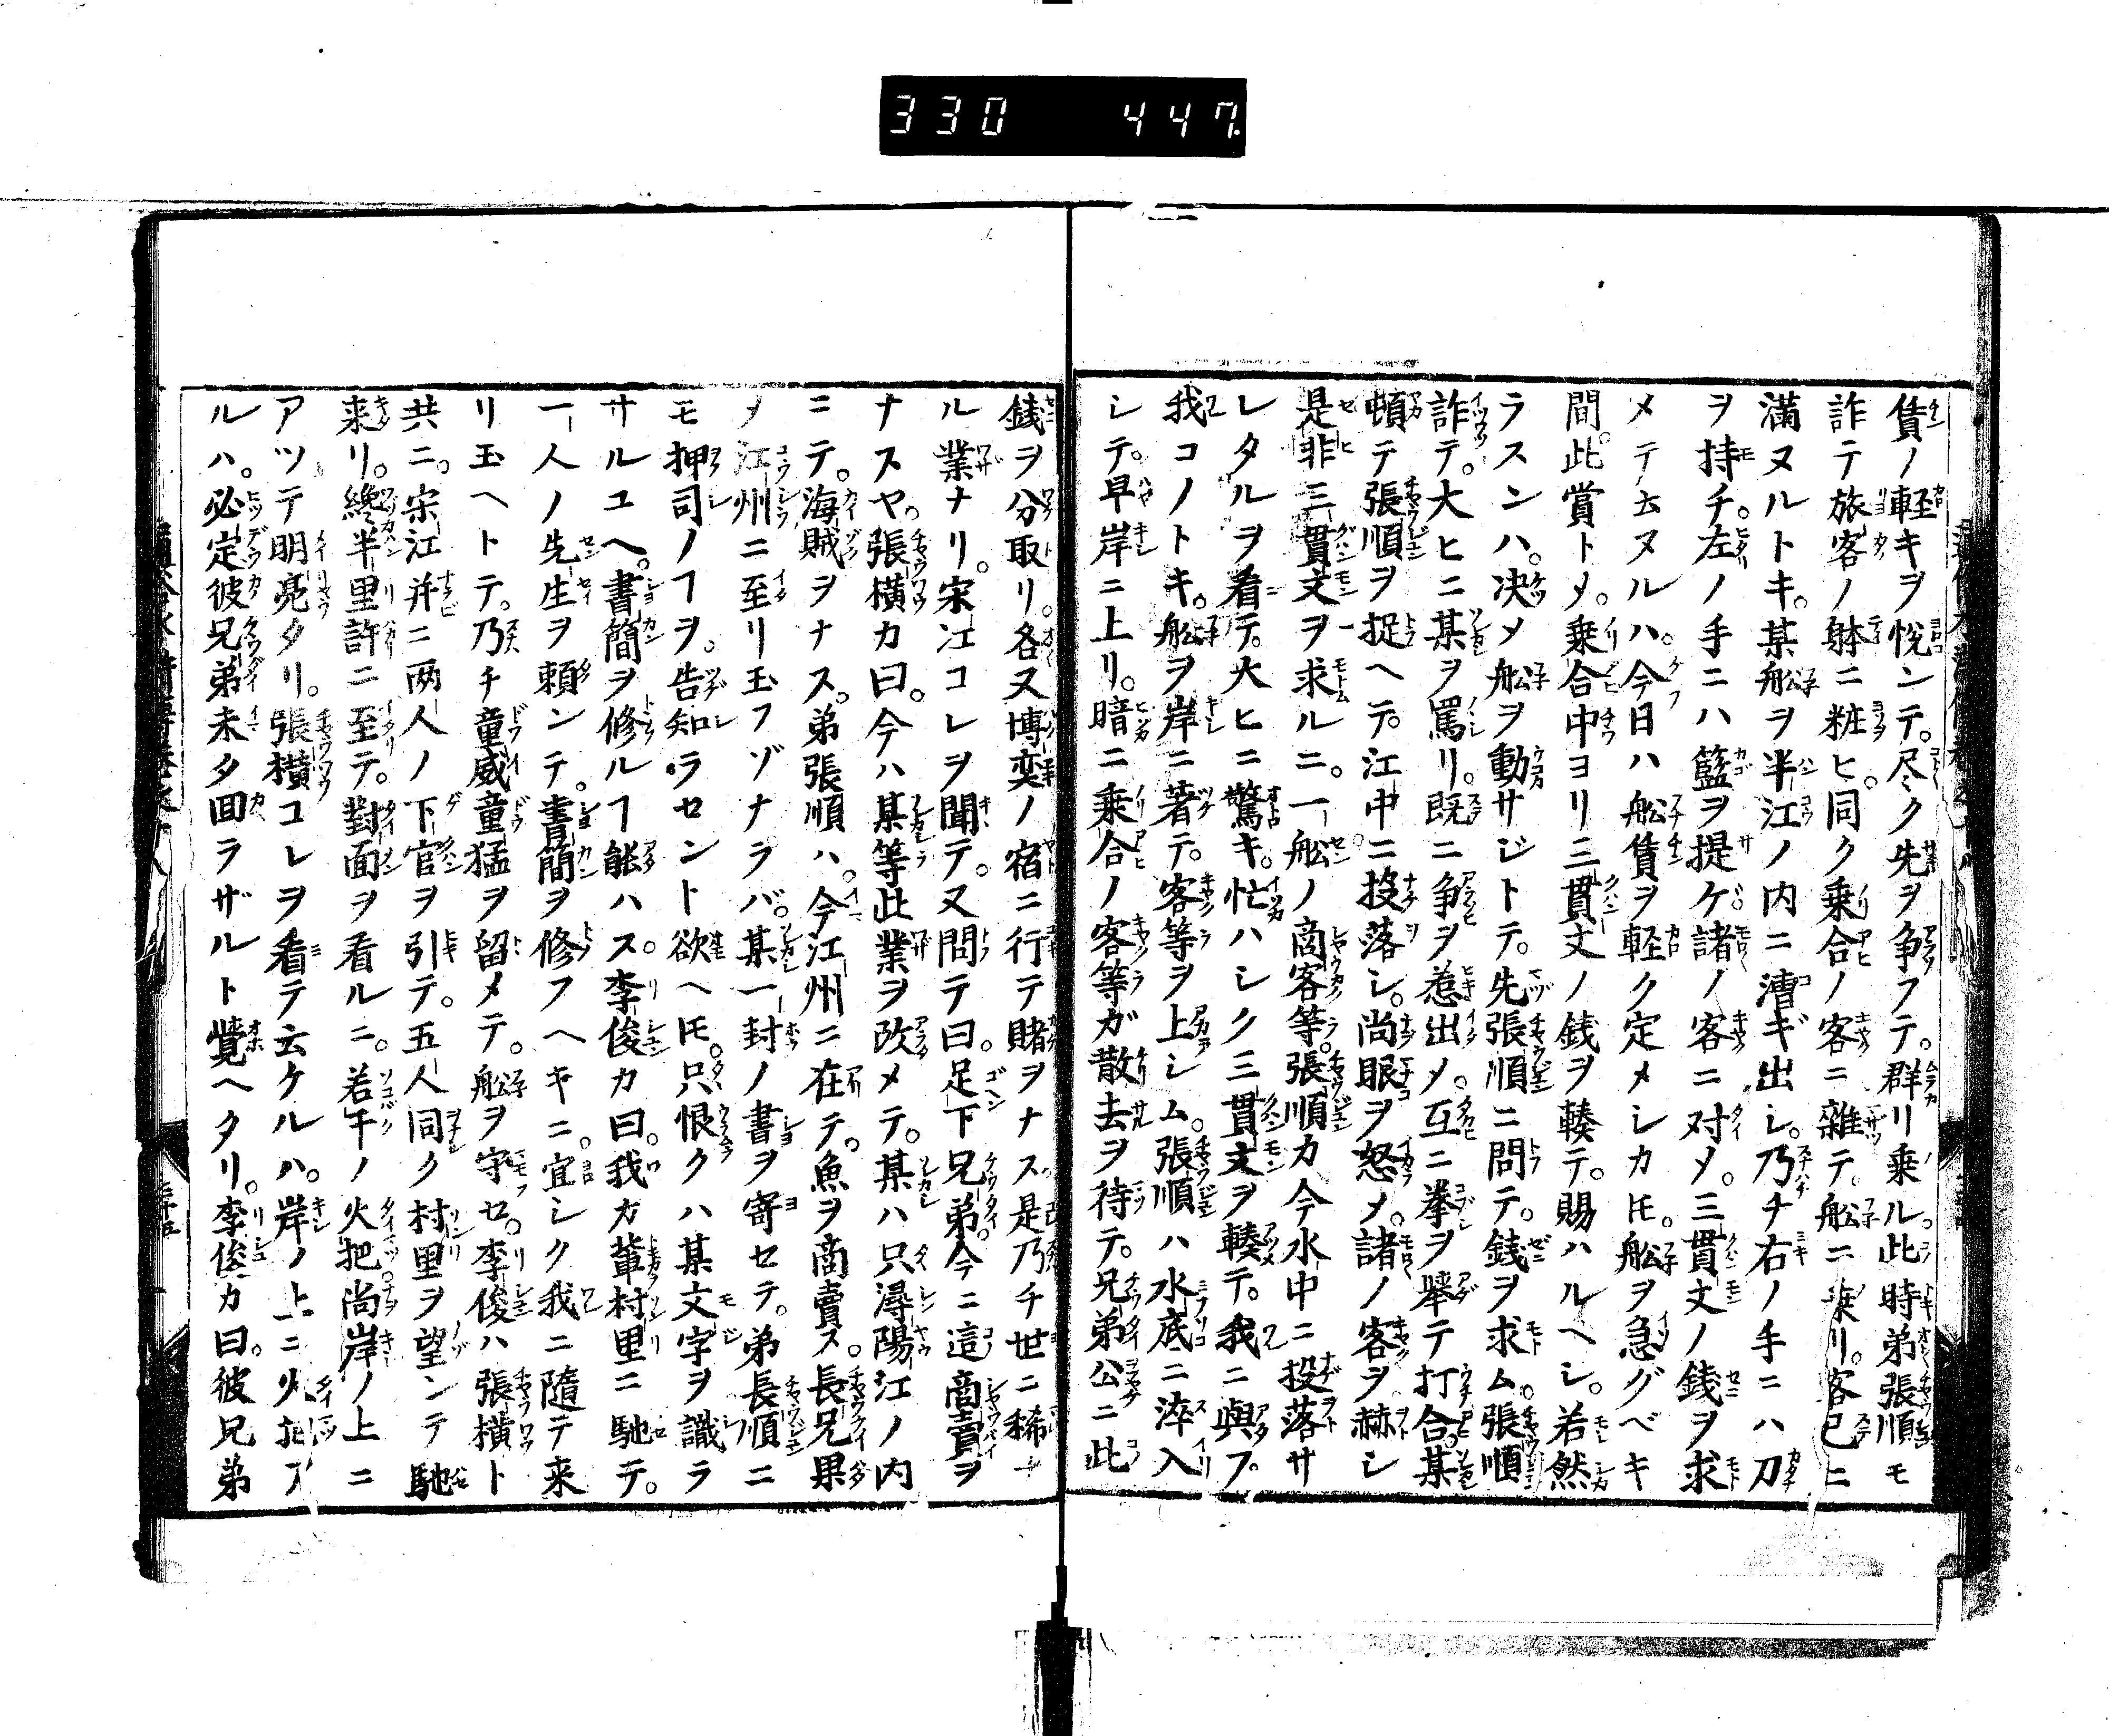 330 447
賃ノ軽キヲ悦ンテ。尽ク先ヲ争フテ。群リ乗ル。此時弟張順モ
詐テ旅客ノ躰ニ粧ヒ。同ク乗合ノ客ニ雜テ。舩ニ乗リ。客已ニ
満ヌルトキ。某舩ヲ半江ノ内ニ漕ギ出シ。乃チ右ノ手ニハ刀
ヲ持チ。左ノ手ニハ籃ヲ提ゲ。諸ノ客ニ対メ。三貫文ノ銭ヲ求
メテ云ヌルハ。今日ハ舩賃ヲ軽ク定メシカ𪜈。舩ヲ急グベキ
間。此賞トメ。乗合中ヨリ三貫文ノ銭ヲ輳テ。賜ハルヘシ。若然
ラスンハ。决メ舩ヲ動サジトテ。先張順ニ問テ。銭ヲ求ム。張順
詐テ。大ヒニ某ヲ罵リ。既ニ争ヲ惹出メ。互ニ拳ヲ舉テ打合。某
頓テ張順ヲ捉ヘテ。江中ニ投落シ。尚眼ヲ怒メ。諸ノ客ヲ赫シ
是非三貫文ヲ求ルニ。一舩ノ商客等。張順カ今水中ニ投落サ
レタルヲ看テ。大ヒニ驚キ。忙ハシク三貫文ヲ輳テ。我ニ與フ。
我コノトキ。舩ヲ岸ニ著テ。客等ヲ上シム。張順ハ水底ニ淬入
シテ。早岸ニ上リ。暗ニ乗合ノ客等ガ散去ヲ待テ。兄弟公ニ此
銭ヲ分取リ。各又博奕ノ宿ニ行テ賭ヲナス是乃チ世ニ稀ナ
ル業ナリ。宋江コレヲ聞テ。又問テ曰。足下兄弟。今ニ這商賣ヲ
ナスヤ。張横カ曰。今ハ某等此業ヲ改メテ。某ハ只潯陽江ノ内
ニテ。海賊ヲナス。弟張順ハ。今江州ニ在テ。魚ヲ商賣ス。長兄果
メ江州ニ至リ玉フゾナラバ。某一封ノ書ヲ寄セテ。弟長順ニ
モ押司ノヿヲ。告知ラセント欲ヘ𪜈。只恨クハ某文字ヲ識ラ
サルユヘ。書簡ヲ修ルヿ能ハス。李俊カ曰。我カ輩村里ニ馳テ。
一人ノ先生ヲ頼ンテ。書簡ヲ修フヘキニ。宜シク我ニ隨テ来
リ玉ヘトテ。乃チ童威童猛ヲ留メテ。舩ヲ守セ。李俊ハ張横ト
共ニ。宋江并ニ两人ノ下官ヲ引テ。五人同ク村里ヲ望ンテ馳
来リ。纔半里許ニ至テ。對面ヲ看ルニ。若干ノ火把尚岸ノ上ニ
アツテ明亮タリ。張横コレヲ看テ云ケルハ。岸ノ上ニ火把ア
ルハ。必定彼兄弟未タ回ラザルト覺ヘタリ。李俊カ曰。彼兄弟